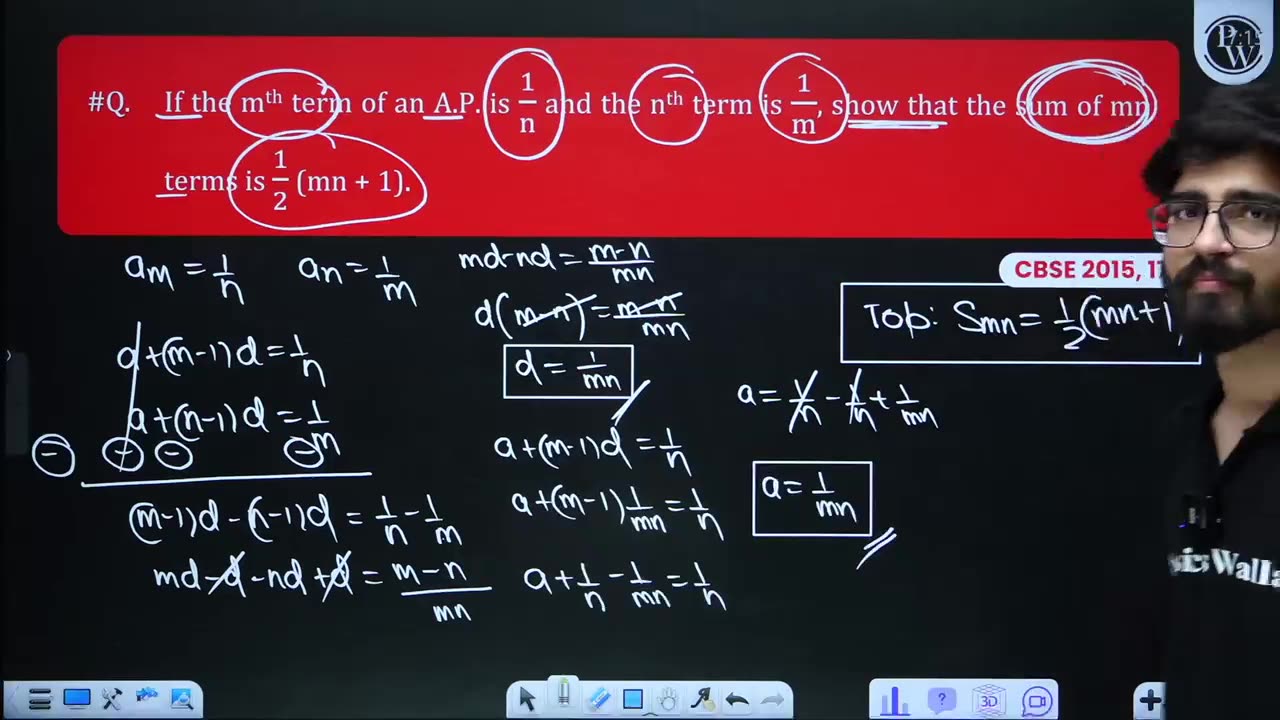 PW
7:1
#Q. If the mᵗʰ term of an A.P. is 1/n and the nᵗʰ term is 1/m, show that the sum of mn
terms is 1/2 (mn + 1).
CBSE 2015, 1
Top: Smn = 1/2 (mn+1
am = 1/n
an = 1/m
a+(m-1)d = 1/n
a+(n-1)d = 1/m
(m-1)d - (n-1)d = 1/n - 1/m
md - d - nd + d = m-n/mn
md-nd = m-n/mn
d(m-n) = m-n/mn
d = 1/mn
a+(m-1)d = 1/n
a+(m-1)1/mn = 1/n
a + 1/n - 1/mn = 1/n
a = 1/n - 1/n + 1/mn
a = 1/mn
sics Walla
3D